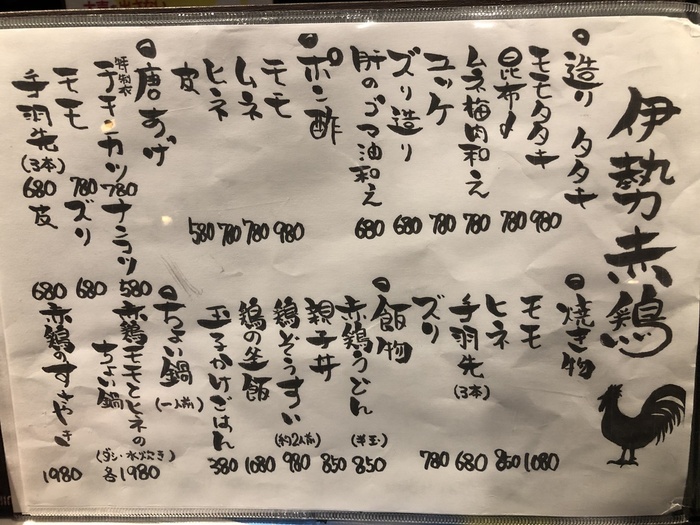 伊勢赤鶏
造り タタキ
モモタタキ 980
昆布〆 780
ムネ梅肉和え 780
ユッケ 780
ズリ造り 680
肝のゴマ油和え 680
ポン酢
モモ 980
ムネ 780
ヒネ 780
皮 580
唐あげ
特製衣
チキンカツ 780
モモ 780
手羽先(3本) 680
ナンコツ 580
ズリ 680
皮 680
焼き物
モモ 1080
ヒネ 850
手羽先(3本) 680
ズリ 780
飯物
赤鶏うどん(半玉) 850
親子丼 850
鶏ぞうすい(約2人前) 980
鶏の釜飯 1080
玉子かけごはん 380
ちょい鍋(一人前)
赤鶏モモとヒネの
ちょい鍋
(ダシ・水炊き)
各1980
赤鶏のすきやき 1980